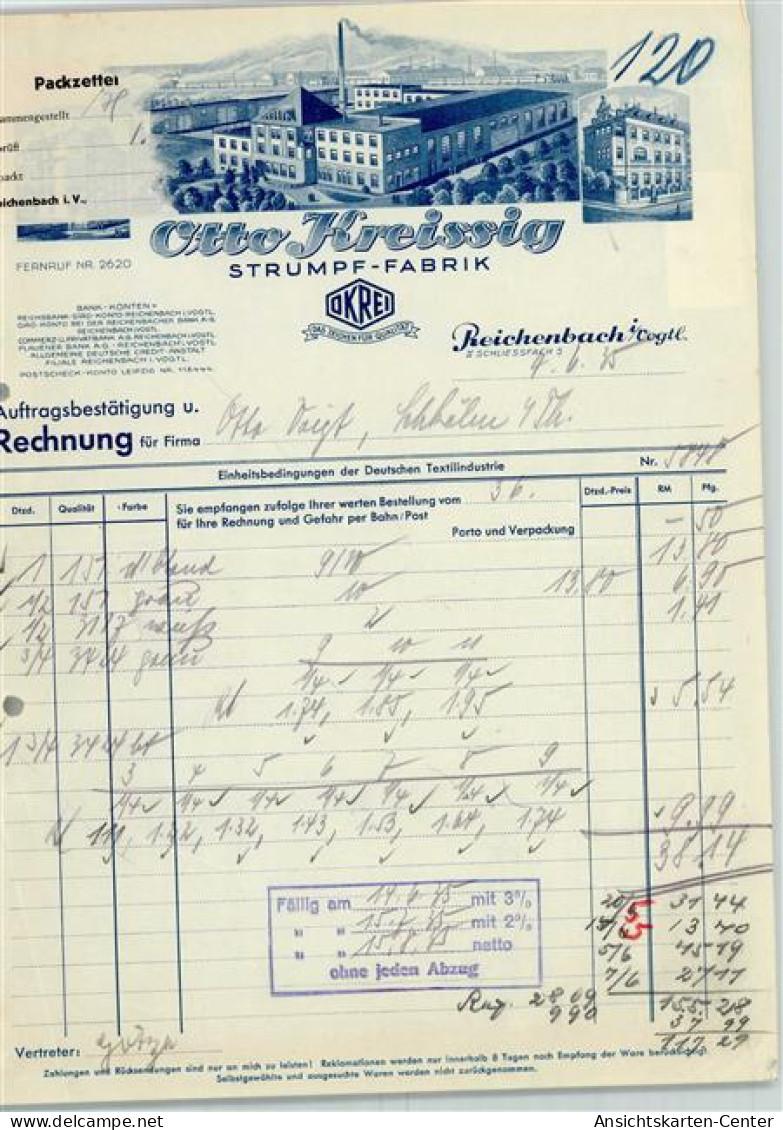 120
Packzettel
ammengestellt
prüft
packt
eichenbach i. V.,
Otto Kreissig
STRUMPF-FABRIK
FERNRUF NR. 2620
OKREI
DAS ZEICHEN FÜR QUALITÄT
BANK-KONTEN:
REICHSBANK-GIRO-KONTO REICHENBACH I. VOGTL.
GIRO-KONTO BEI DER REICHENBACHER BANK A.G.
REICHENBACH I. VOGTL.
COMMERZ-U. PRIVATBANK A.G. REICHENBACH I. VOGTL.
PLAUENER BANK A.G. REICHENBACH I. VOGTL.
ALLGEMEINE DEUTSCHE CREDIT-ANSTALT
FILIALE REICHENBACH I. VOGTL.
POSTSCHECK-KONTO LEIPZIG NR. 118444
Reichenbach i/Vogtl.
SCHLIESSFACH 5
Auftragsbestätigung u.
Rechnung für Firma Otto Voigt,
Einheitsbedingungen der Deutschen Textilindustrie
Nr. 5848
Dtzd. Qualität Farbe
Sie empfangen zufolge Ihrer werten Bestellung vom 3 6.
für Ihre Rechnung und Gefahr per Bahn/Post
Porto und Verpackung
Dtzd.-Preis RM Pfg.
— 50
1 157 9/10 13 80
1/2 157 grau 10 13.80 6 90
1/2 weiß 1.41
3/4 grau 9 10 11
1/4 1/4 1/4
1.74, 1.85, 1.95 5.54
1 3/4
3 4 5 6 7 8 9
1/4 1/4 1/4 1/4 1/4 1/4 1/4
1.11, 1.22, 1.32, 1.43, 1.53, 1.64, 1.74 9.99
38.14
Fällig am 14.6.35 mit 3%
" " 15.7.35 mit 2%
" " 15.8.35 netto
ohne jeden Abzug
20/5 31 44
13 40
5/6 45 19
7/6 27 11
28 09 155.28
9 90 37 99
117 29
Vertreter:
Zahlungen und Rücksendungen sind nur an mich zu leisten! Reklamationen werden nur innerhalb 8 Tagen nach Empfang der Ware berücksichtigt.
Selbstgewählte und ausgesuchte Waren werden nicht zurückgenommen.
Ansichtskarten-Center